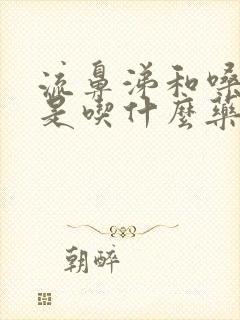 流鼻涕和嗓
是喫什麼藥
朝醉